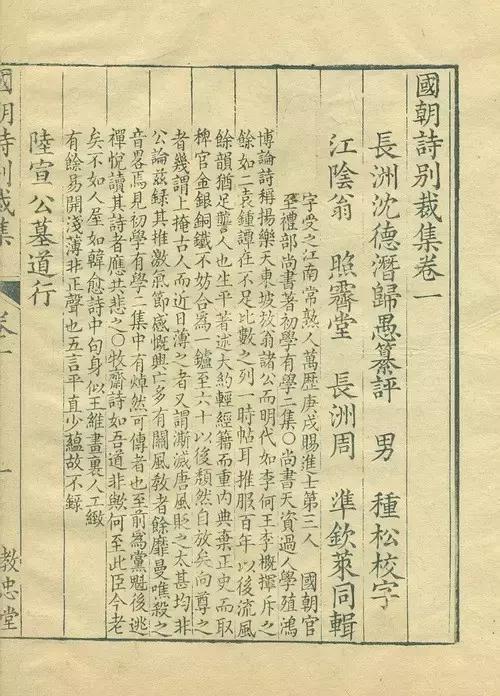 國朝詩別裁集卷一
長洲沈德潛歸愚纂評 男 種松校字
江陰翁 照霽堂 長洲周 準欽萊同輯
字受之江南常熟人萬歷庚戌賜進士第三人 國朝官
至禮部尚書著初學有學二集〇尚書天資過人學殖鴻
博論詩稱揚樂天東坡放翁諸公而明代如李何王李概揮斥之
餘如二袁鍾譚在不足比數之列一時帖耳推服百年以後流風
餘韻猶足讋人也生平著述大約輕經籍而重內典棄正史而取
稗官金銀銅鐵不妨合為一鑪至六十以後頹然自放矣向尊之
者幾謂上掩古人而近日薄之者又謂澌滅唐風貶之太甚均非
公論茲録其推激氣節感慨興亡多有關風教者餘靡曼噍殺之
音畧焉見初學有學二集中有焯然可傳者也至前為黨魁後逃
禪悅讀其詩者應共悲之〇牧齋詩如吾道非歟何至此臣今老
矣不如人屋如韓愈詩中句身似王維畫裏人工緻
有餘易開淺薄非正聲也五言平直少蘊故不錄
陸宣公墓道行
國朝詩別裁集
卷一
一
教忠堂